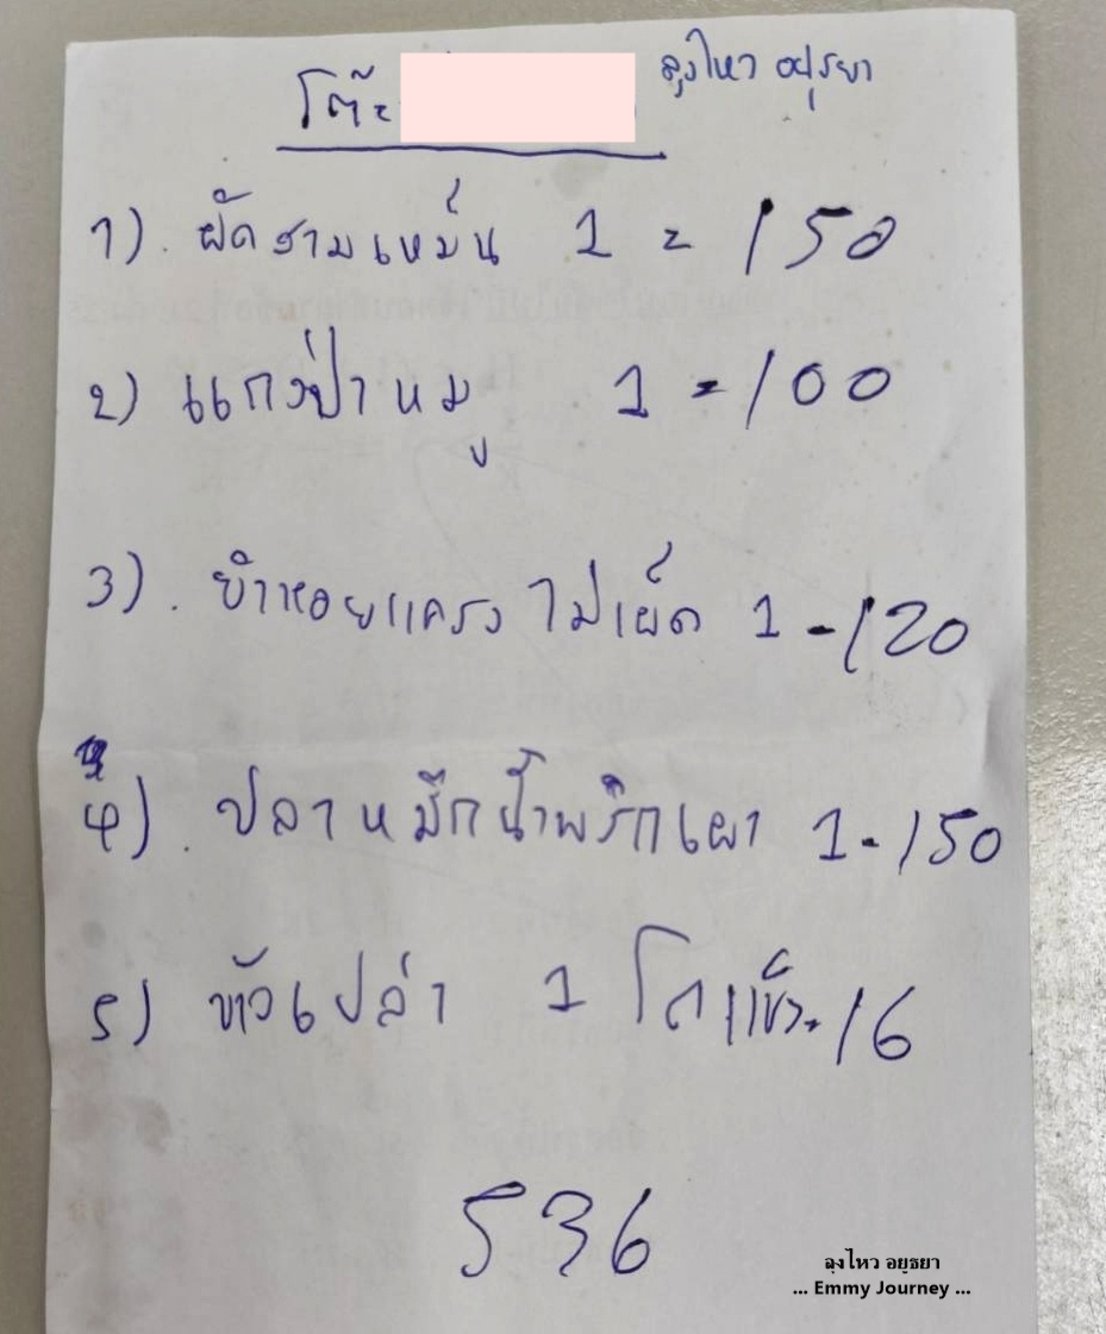 โต๊ะ ลุงไหว อยุธยา
1). ผัดสามเหม็น 1 = 150
2) แกงป่าหมู 1 = 100
3). ยำหอยแครง ไม่เผ็ด 1 - 120
4). ปลาหมึกน้ำพริกเผา 1 - 150
5) ข้าวเปล่า 1 โถ 16
536
ลุงไหว อยุธยา
... Emmy Journey ...